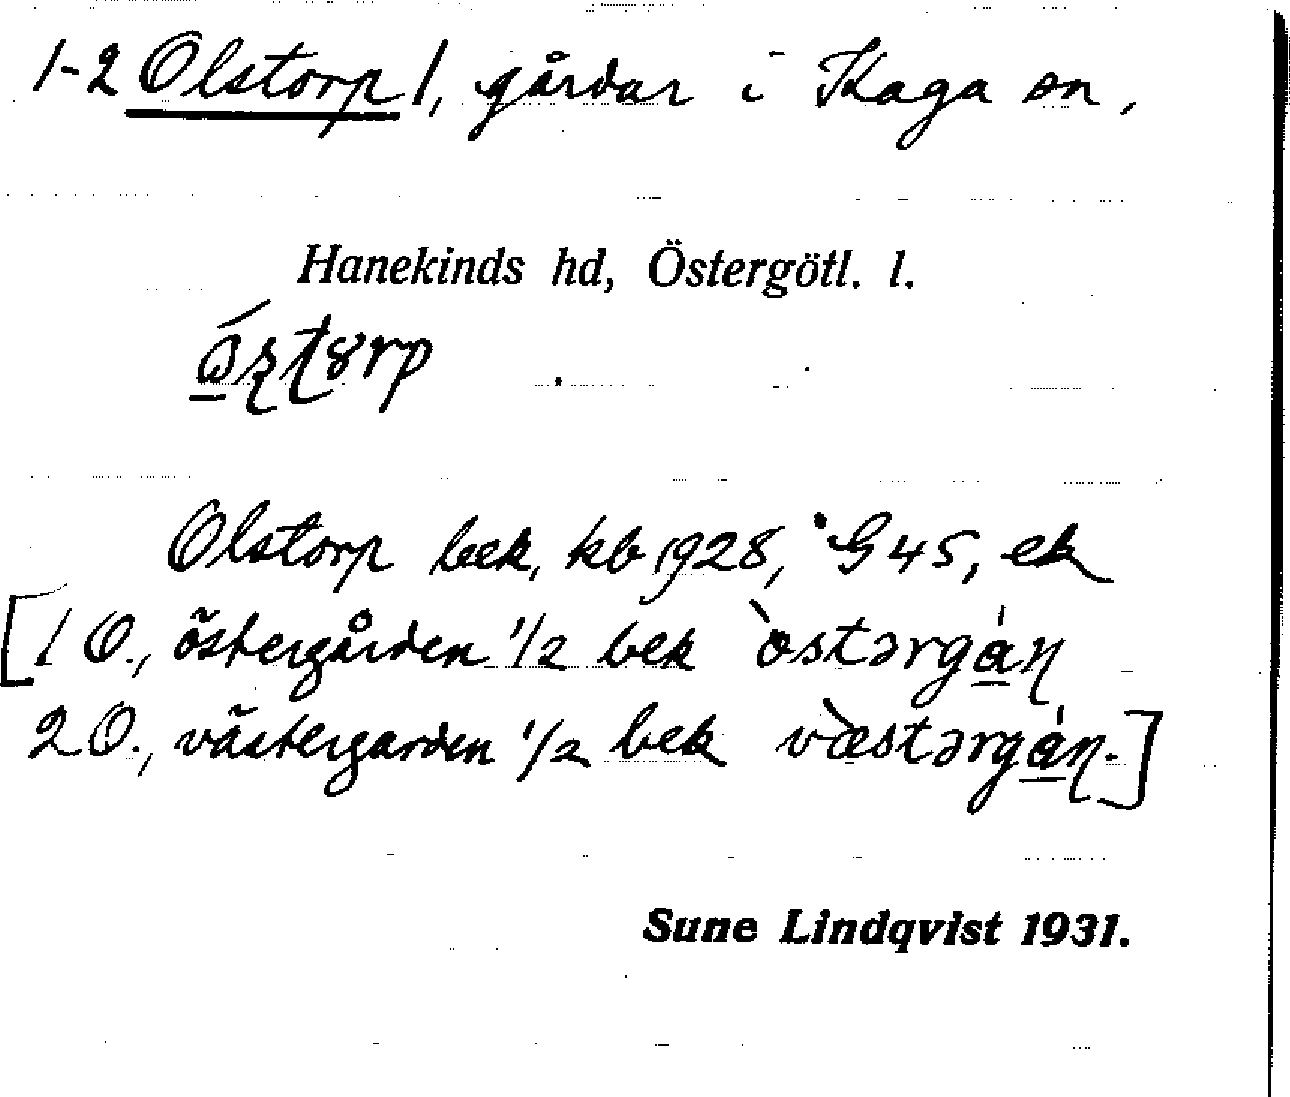 1-2 Olstorp /, gårdar i Kaga sn,
Hanekinds hd, Östergötl. l.
Olstorp bek, kb 1928, G45, ek
[1 O., östergården 1/2 bek òstərgán
2 O., västergarden 1/2 bek væ̀stərgán.]
Sune Lindqvist 1931.